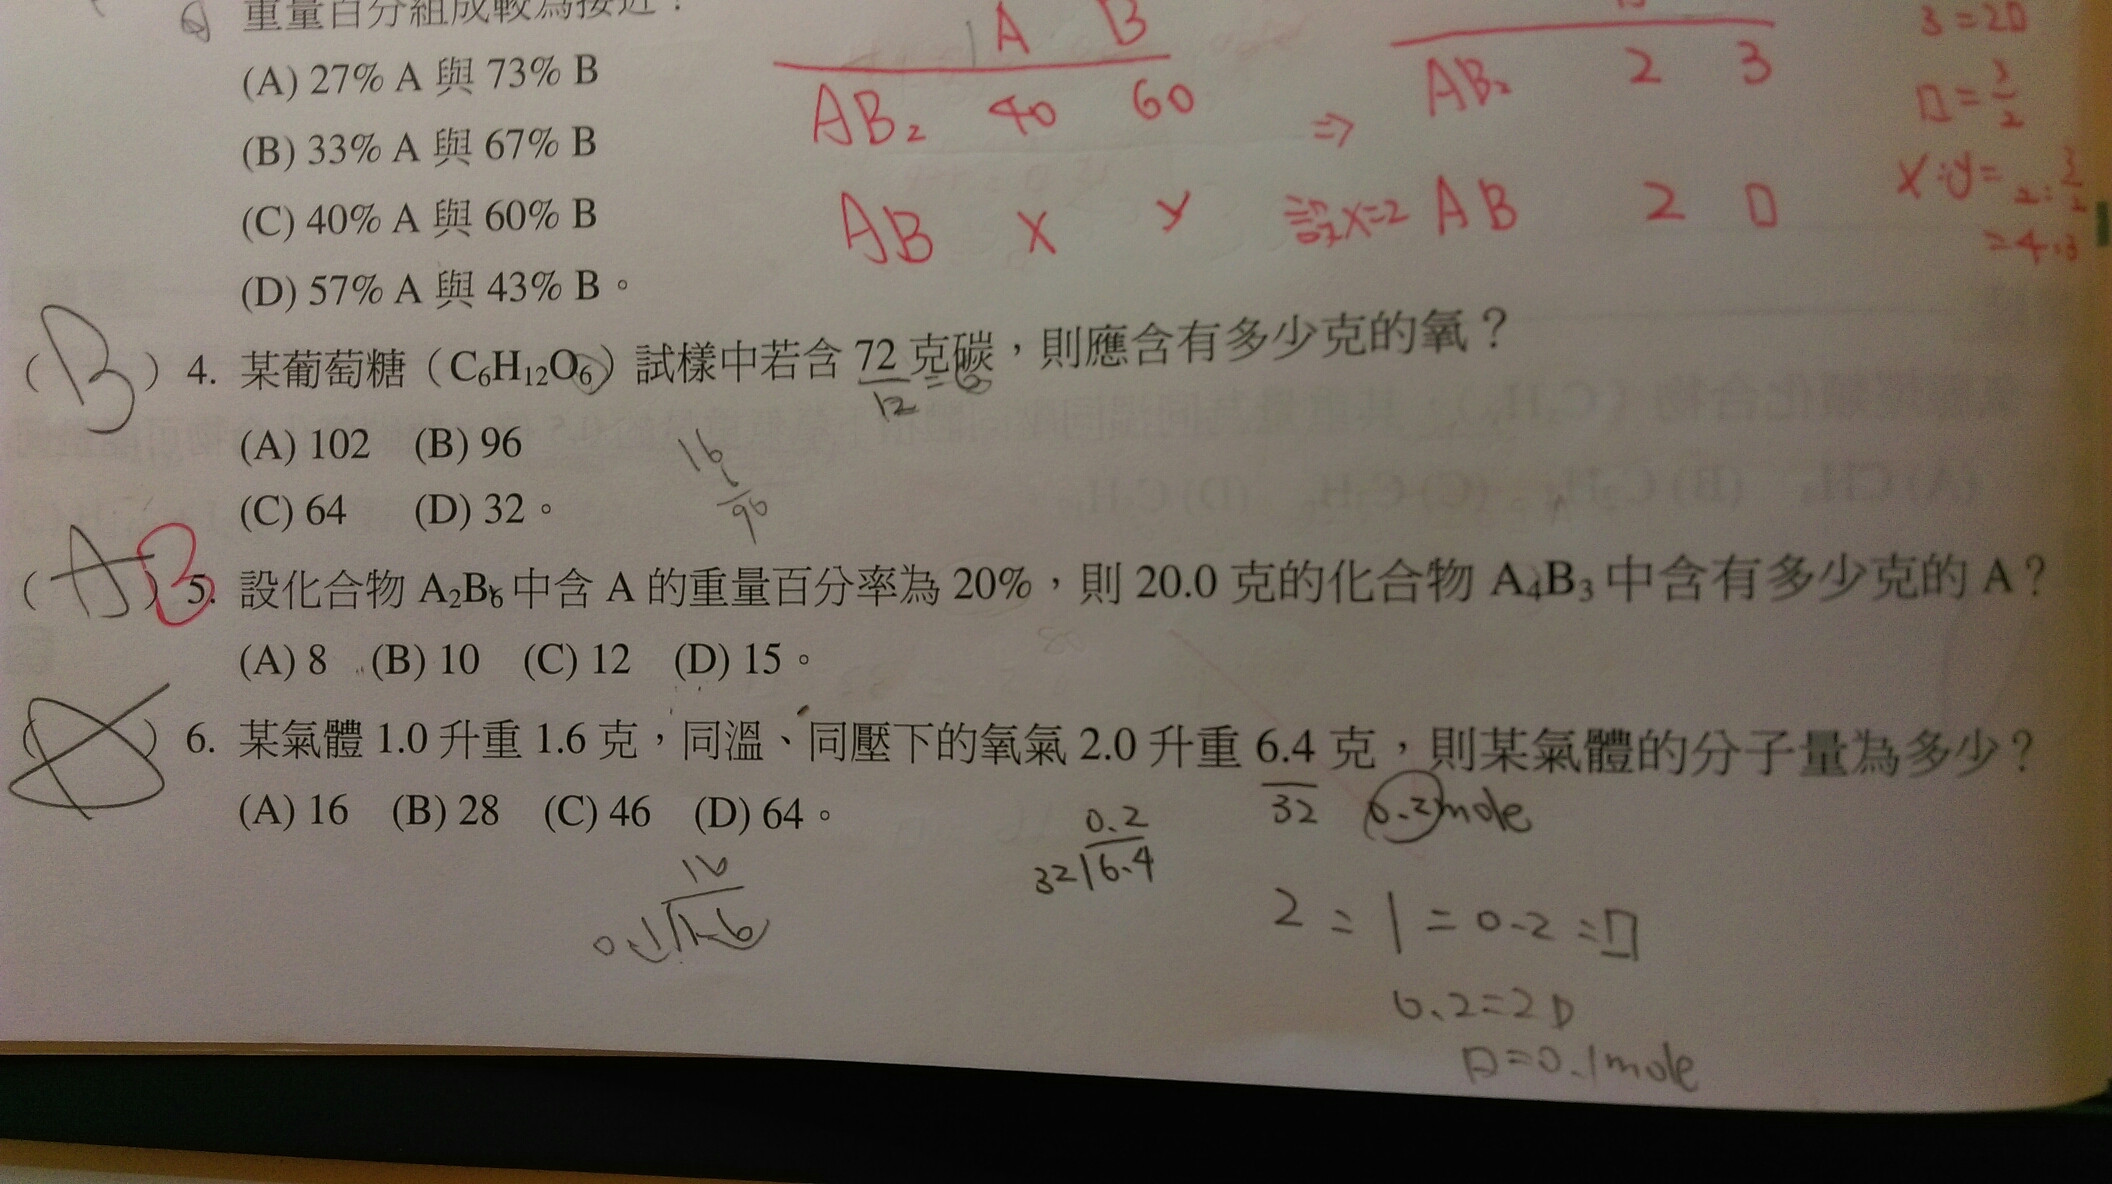 重量百分組成較為接近？
(A) 27% A 與 73% B
(B) 33% A 與 67% B
(C) 40% A 與 60% B
(D) 57% A 與 43% B。
A B
AB₂ 40 60
AB X Y
⇒
AB₂ 2 3
設X=2 AB 2 □
3=2□
□=3/2
X:y=2:3/2
=4:3
(B) 4. 某葡萄糖（C₆H₁₂O₆）試樣中若含 72 克碳，則應含有多少克的氧？
12 =6
(A) 102 (B) 96
(C) 64 (D) 32。
16
6
96
(A) B 5. 設化合物 A₂B₆ 中含 A 的重量百分率為 20%，則 20.0 克的化合物 A₄B₃ 中含有多少克的 A？
(A) 8 (B) 10 (C) 12 (D) 15。
6. 某氣體 1.0 升重 1.6 克，同溫、同壓下的氧氣 2.0 升重 6.4 克，則某氣體的分子量為多少？
(A) 16 (B) 28 (C) 46 (D) 64。
32 0.2 mole
0.2
32 6.4
16
0.1 1.6
2:1=0.2:□
0.2=2□
□=0.1mole